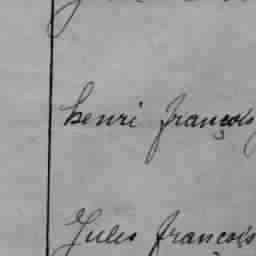 henri françois
Jules françois